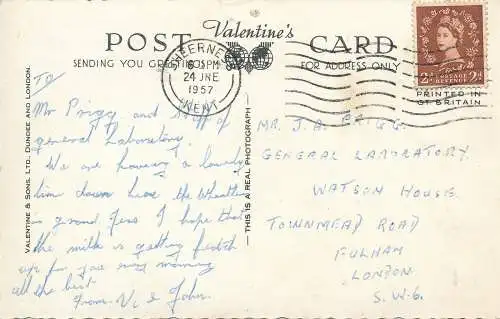 POST Valentine's CARD
SENDING YOU GREETINGS FOR ADDRESS ONLY
SHEERNESS
6 PM
24 JNE
1957
KENT
2D POSTAGE REVENUE 2D
PRINTED IN
GT BRITAIN
VALENTINE & SONS. LTD. DUNDEE AND LONDON.
— THIS IS A REAL PHOTOGRAPH —
To
Mr Prigg and staff of
general Laboratory.
We are having a lovely
time down here the Weather
is grand Jess I hope that
the milk is getting fetch
up for you every morning
all the best
From. V. & John.
MR. J. A. PRIGG.
GENERAL LABORATORY.
WATSON HOUSE.
TOWNMEAD ROAD
FULHAM
LONDON
S.W.6.